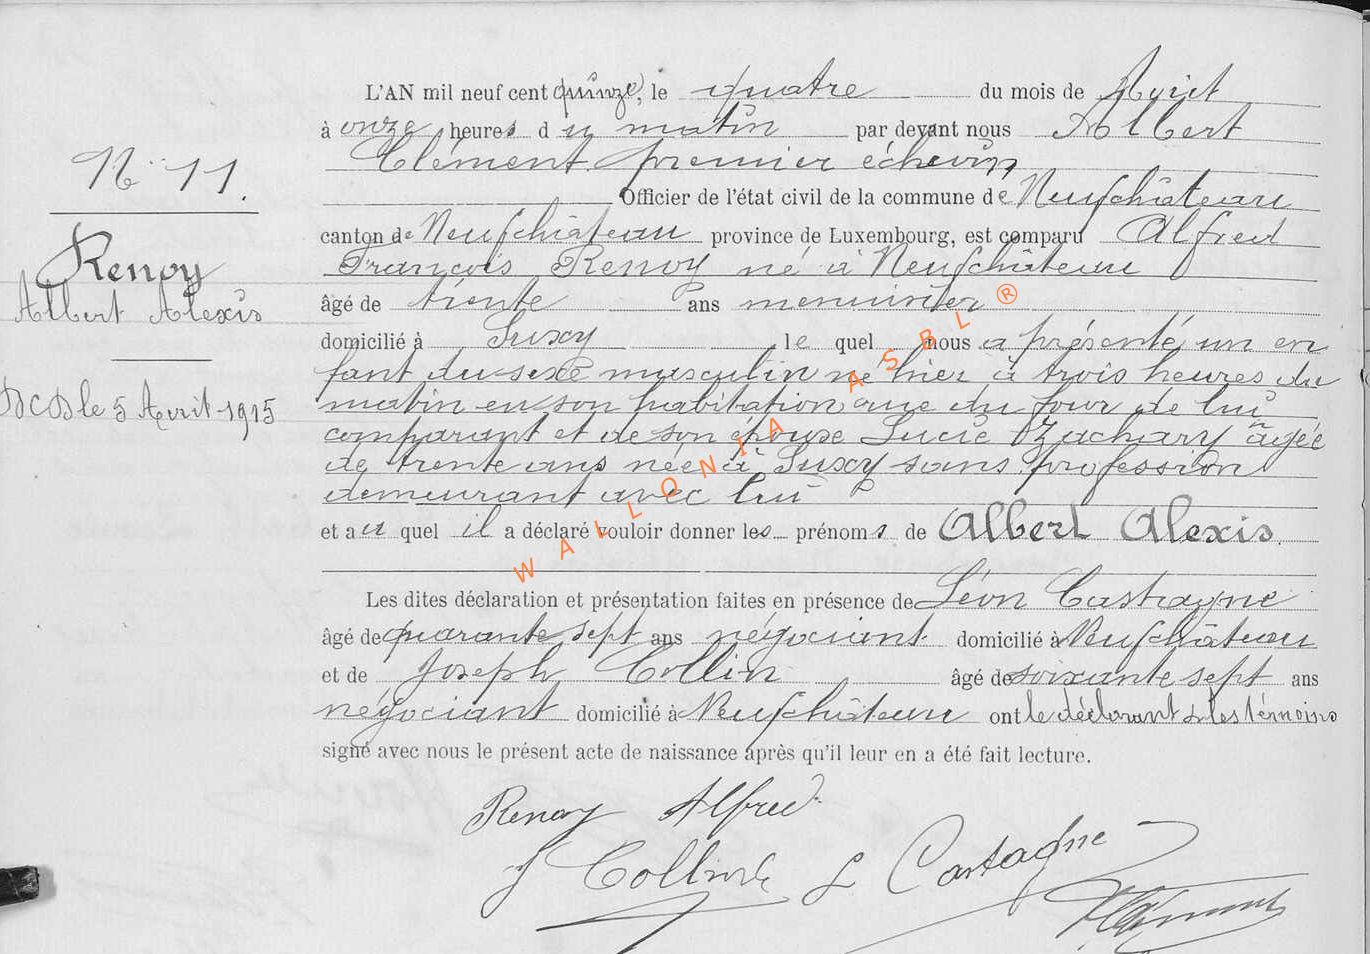 N° 11.
Renoy
Albert Alexis
DCD le 5 Avril 1915
L'AN mil neuf cent quinze, le quatre du mois de Avril
à onze heures du matin par devant nous Albert
Clément premier échevin
Officier de l'état civil de la commune de Neufchâteau
canton de Neufchâteau province de Luxembourg, est comparu Alfred
François Renoy né à Neufchâteau
âgé de trente ans menuisier
domicilié à Suxy le quel nous a présenté un en
fant du sexe masculin né hier à trois heures du
matin en son habitation rue du four de lui
comparant et de son épouse Lucie Zachary âgée
de trente ans née à Suxy sans profession
demeurant avec lui
et au quel il a déclaré vouloir donner les prénoms de Albert Alexis.
Les dites déclaration et présentation faites en présence de Léon Castagne
âgé de quarante sept ans négociant domicilié à Neufchâteau
et de Joseph Collin âgé de soixante sept ans
négociant domicilié à Neufchâteau ont le déclarant & les témoins
signé avec nous le présent acte de naissance après qu'il leur en a été fait lecture.
Renoy Alfred
J Collin L Castagne
AClément
WALLONIA ASBL ®